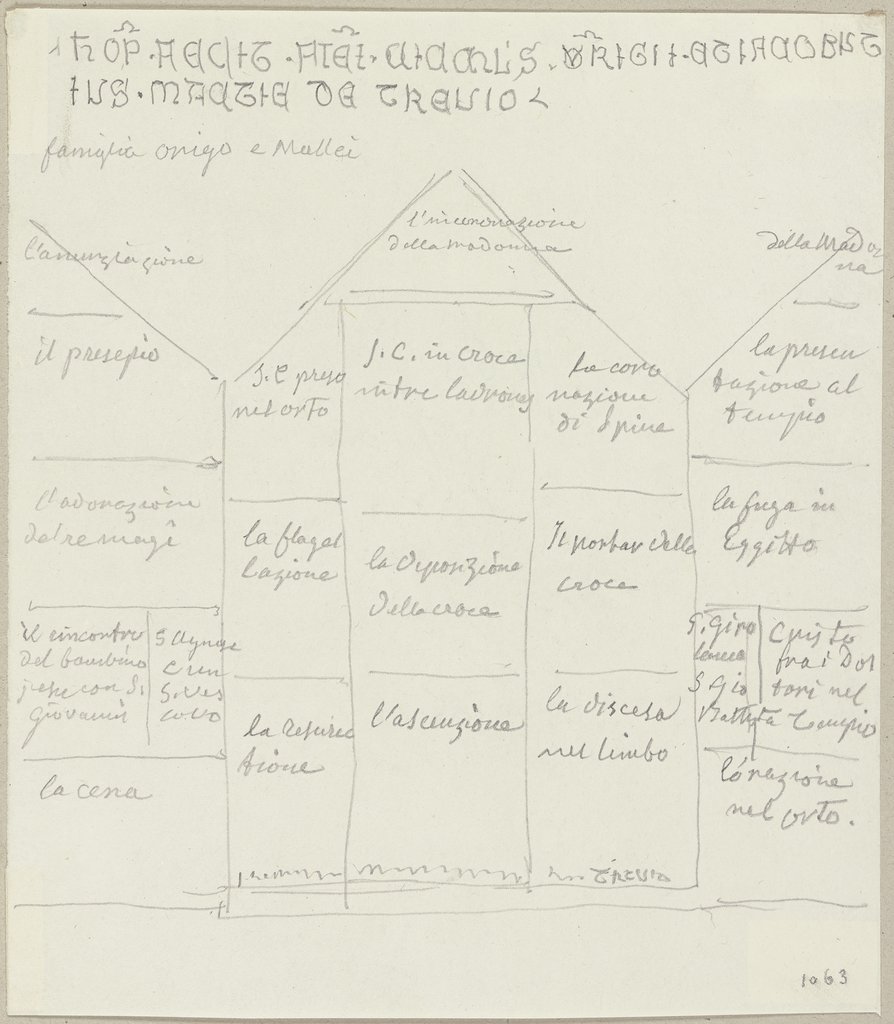 famiglia onigo e Mallei
l'anunziazione
l'incoronazione
della madonna
della Mado
na
il presepio
J.C preso
nel orto
J. C. in croce
in tre ladrony
la coro
nazione
di Spine
la presen
tazione al
tempio
l'adorazione
dal re magi
la flagel
lazione
la deposizione
della croce
Il portar della
croce
la fuga in
Eggitto
il rincontro
del bambino
jesu con S.
Giovanni
S Agnese
e un
S. Ves
covo
S. Giro
lamo
S Gio
Battista
Cristo
fra i Dot
tori nel
Tempio
la resurec
tione
l'ascenzione
la discesa
nel limbo
la cena
l'orazione
nel orto.
1063